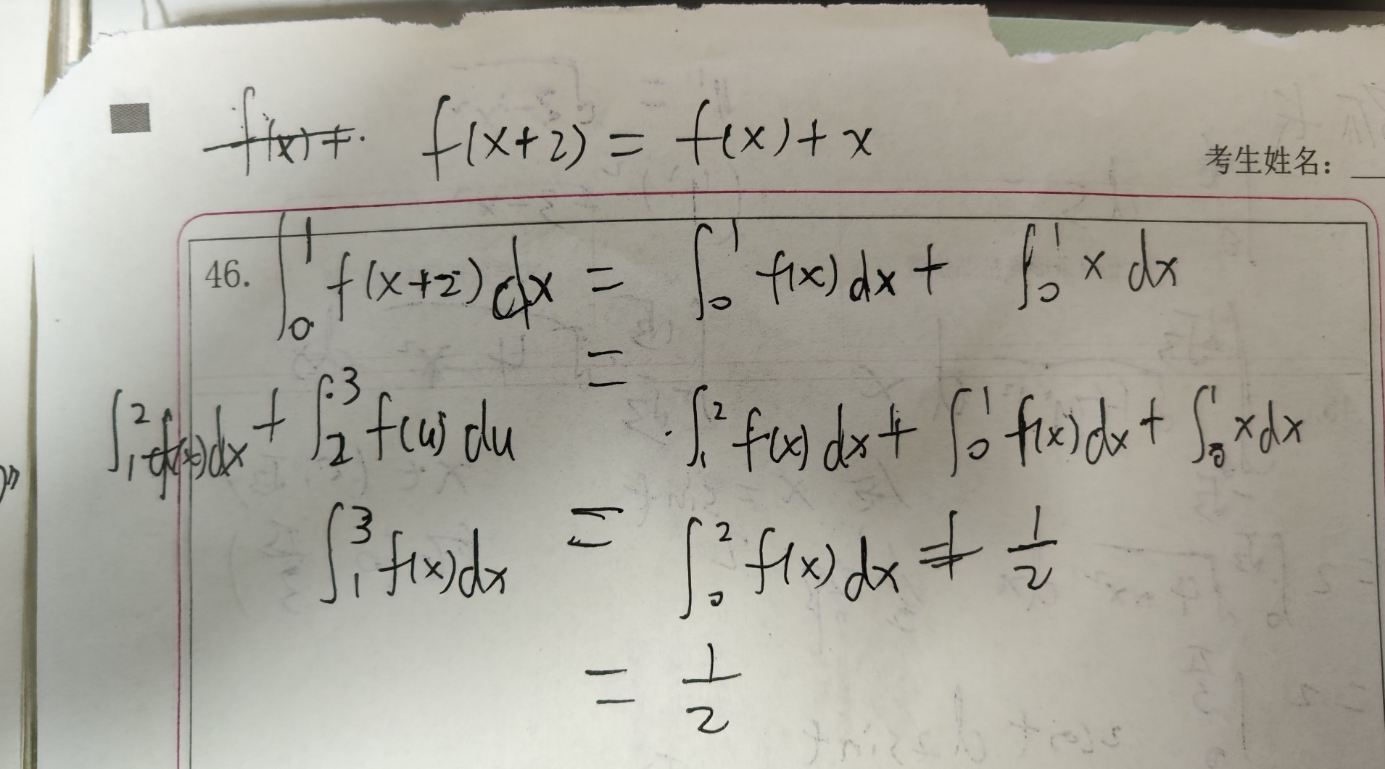 f(x)+ f(x+2) = f(x) + x
考生姓名:
46. ∫₀¹ f(x+2) dx = ∫₀¹ f(x) dx + ∫₀¹ x dx
=
∫₁² f(x) dx + ∫₂³ f(u) du ∫₁² f(x) dx + ∫₀¹ f(x) dx + ∫₀¹ x dx
∫₁³ f(x) dx = ∫₀² f(x) dx + 1/2
= 1/2